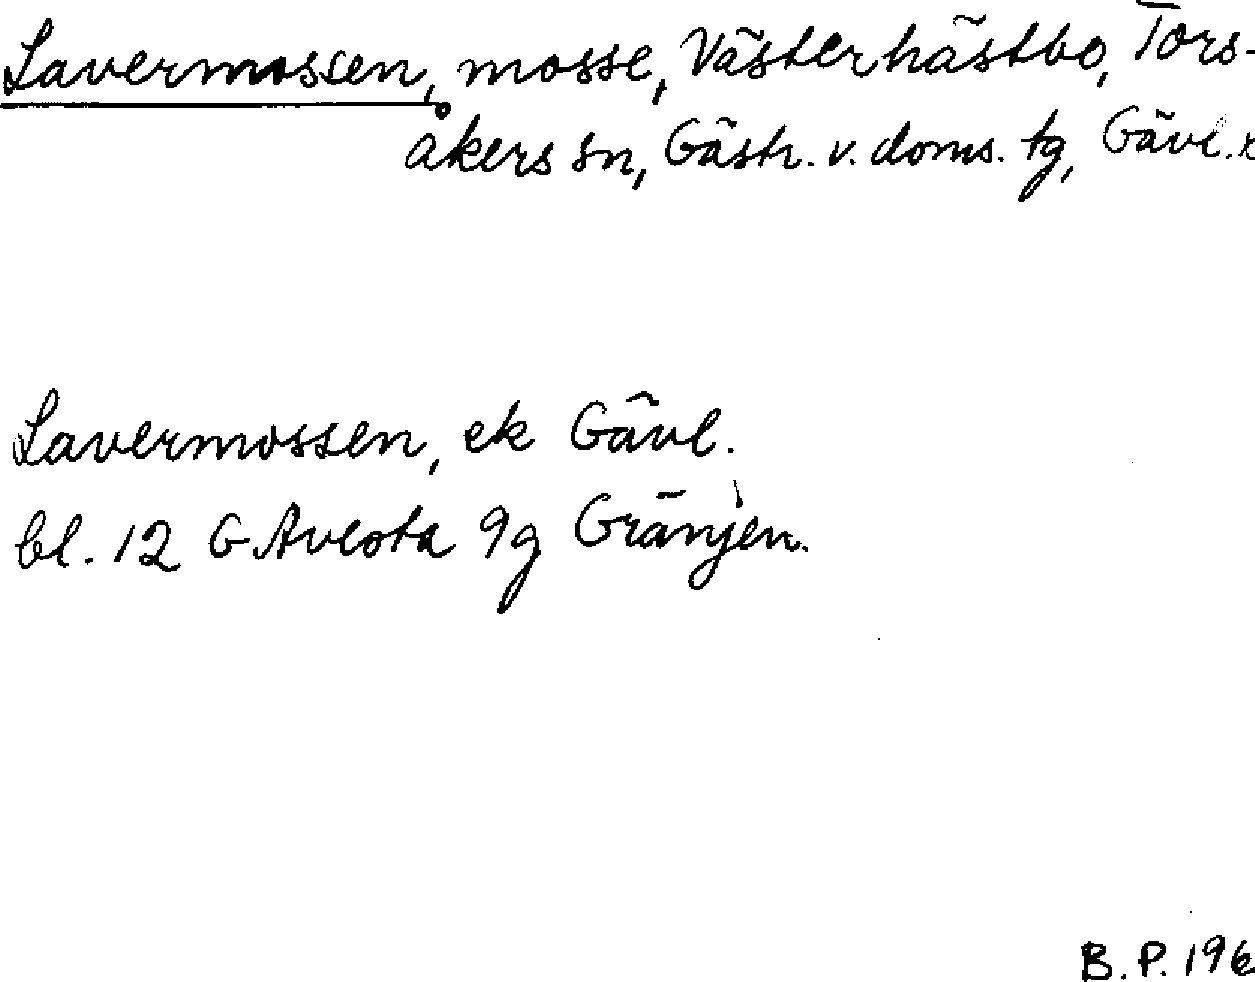 Lavermossen, mosse, Västerhästbo, Tors-
åkers sn, Gästr. v. doms. tg, Gävl.
Lavermossen, ek Gävl.
bl. 12 G Avesta 9g Gränjen.
B. P. 196